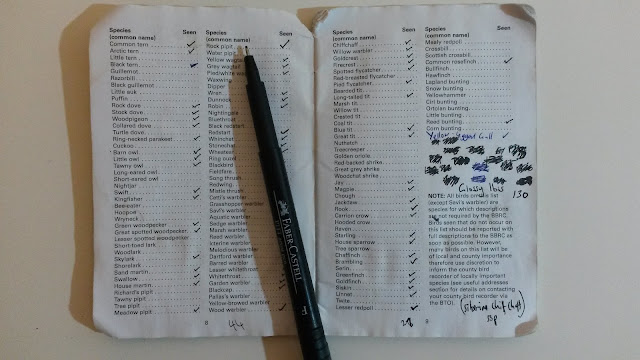 Species
(common name) Seen
Common tern
Arctic tern
Little tern
Black tern
Guillemot
Razorbill
Black guillemot
Little auk
Puffin
Rock dove
Stock dove
Woodpigeon
Collared dove
Turtle dove
Ring-necked parakeet
Cuckoo
Barn owl
Little owl
Tawny owl
Long-eared owl
Short-eared owl
Nightjar
Swift
Kingfisher
Bee-eater
Hoopoe
Wryneck
Green woodpecker
Great spotted woodpecker
Lesser spotted woodpecker
Short-toed lark
Woodlark
Skylark
Shorelark
Sand martin
Swallow
House martin
Richard's pipit
Tawny pipit
Tree pipit
Meadow pipit
8
Species
(common name) Seen
Rock pipit
Water pipit
Yellow
Grey
Pied/white
Waxwing
Dipper
Wren
Dunnock
Robin
Nightingale
Bluethroat
Black redstart
Redstart
Whinchat
Stonechat
Wheatear
Ring ouzel
Blackbird
Fieldfare
Song thrush
Redwing
Mistle thrush
Cetti's warbler
Grasshopper warbler
Savi's warbler
Aquatic warbler
Sedge warbler
Marsh warbler
Reed warbler
Icterine warbler
Melodious warbler
Dartford warbler
Barred warbler
Lesser whitethroat
Whitethroat
Garden warbler
Blackcap
Pallas's warbler
Yellow-browed warbler
Wood warbler
44
FABER-CASTELL
Species
(common name) Seen
Chiffchaff
Willow warbler
Goldcrest
Firecrest
Spotted flycatcher
Red-breasted flycatcher
Pied flycatcher
Bearded tit
Long-tailed tit
Marsh tit
Willow tit
Crested tit
Coal tit
Blue tit
Great tit
Nuthatch
Treecreeper
Golden oriole
Red-backed shrike
Great grey shrike
Woodchat shrike
Jay
Magpie
Chough
Jackdaw
Rook
Carrion crow
Hooded crow
Raven
Starling
House sparrow
Tree sparrow
Chaffinch
Brambling
Serin
Greenfinch
Goldfinch
Siskin
Linnet
Twite
Lesser redpoll
Species
(common name) Seen
Mealy redpoll
Crossbill
Scottish crossbill
Common rosefinch
Bullfinch
Hawfinch
Lapland bunting
Snow bunting
Yellowhammer
Cirl bunting
Ortolan bunting
Little bunting
Reed bunting
Corn bunting
Yellow legged Gull
Glossy Ibis
130
NOTE: All birds on this list
(except Savi's warbler) are
species for which descriptions
are not required by the BBRC.
Birds seen that do not occur on
this list should be reported with
full descriptions to the BBRC as
soon as possible. However,
many birds on this list will be
of local and county importance
therefore use discretion to
inform the county bird
recorder of locally important
species (see useful addresses
section for details on contacting
your county bird recorder via
the BTO).
(Siberian chiffchaff)
ssp
9